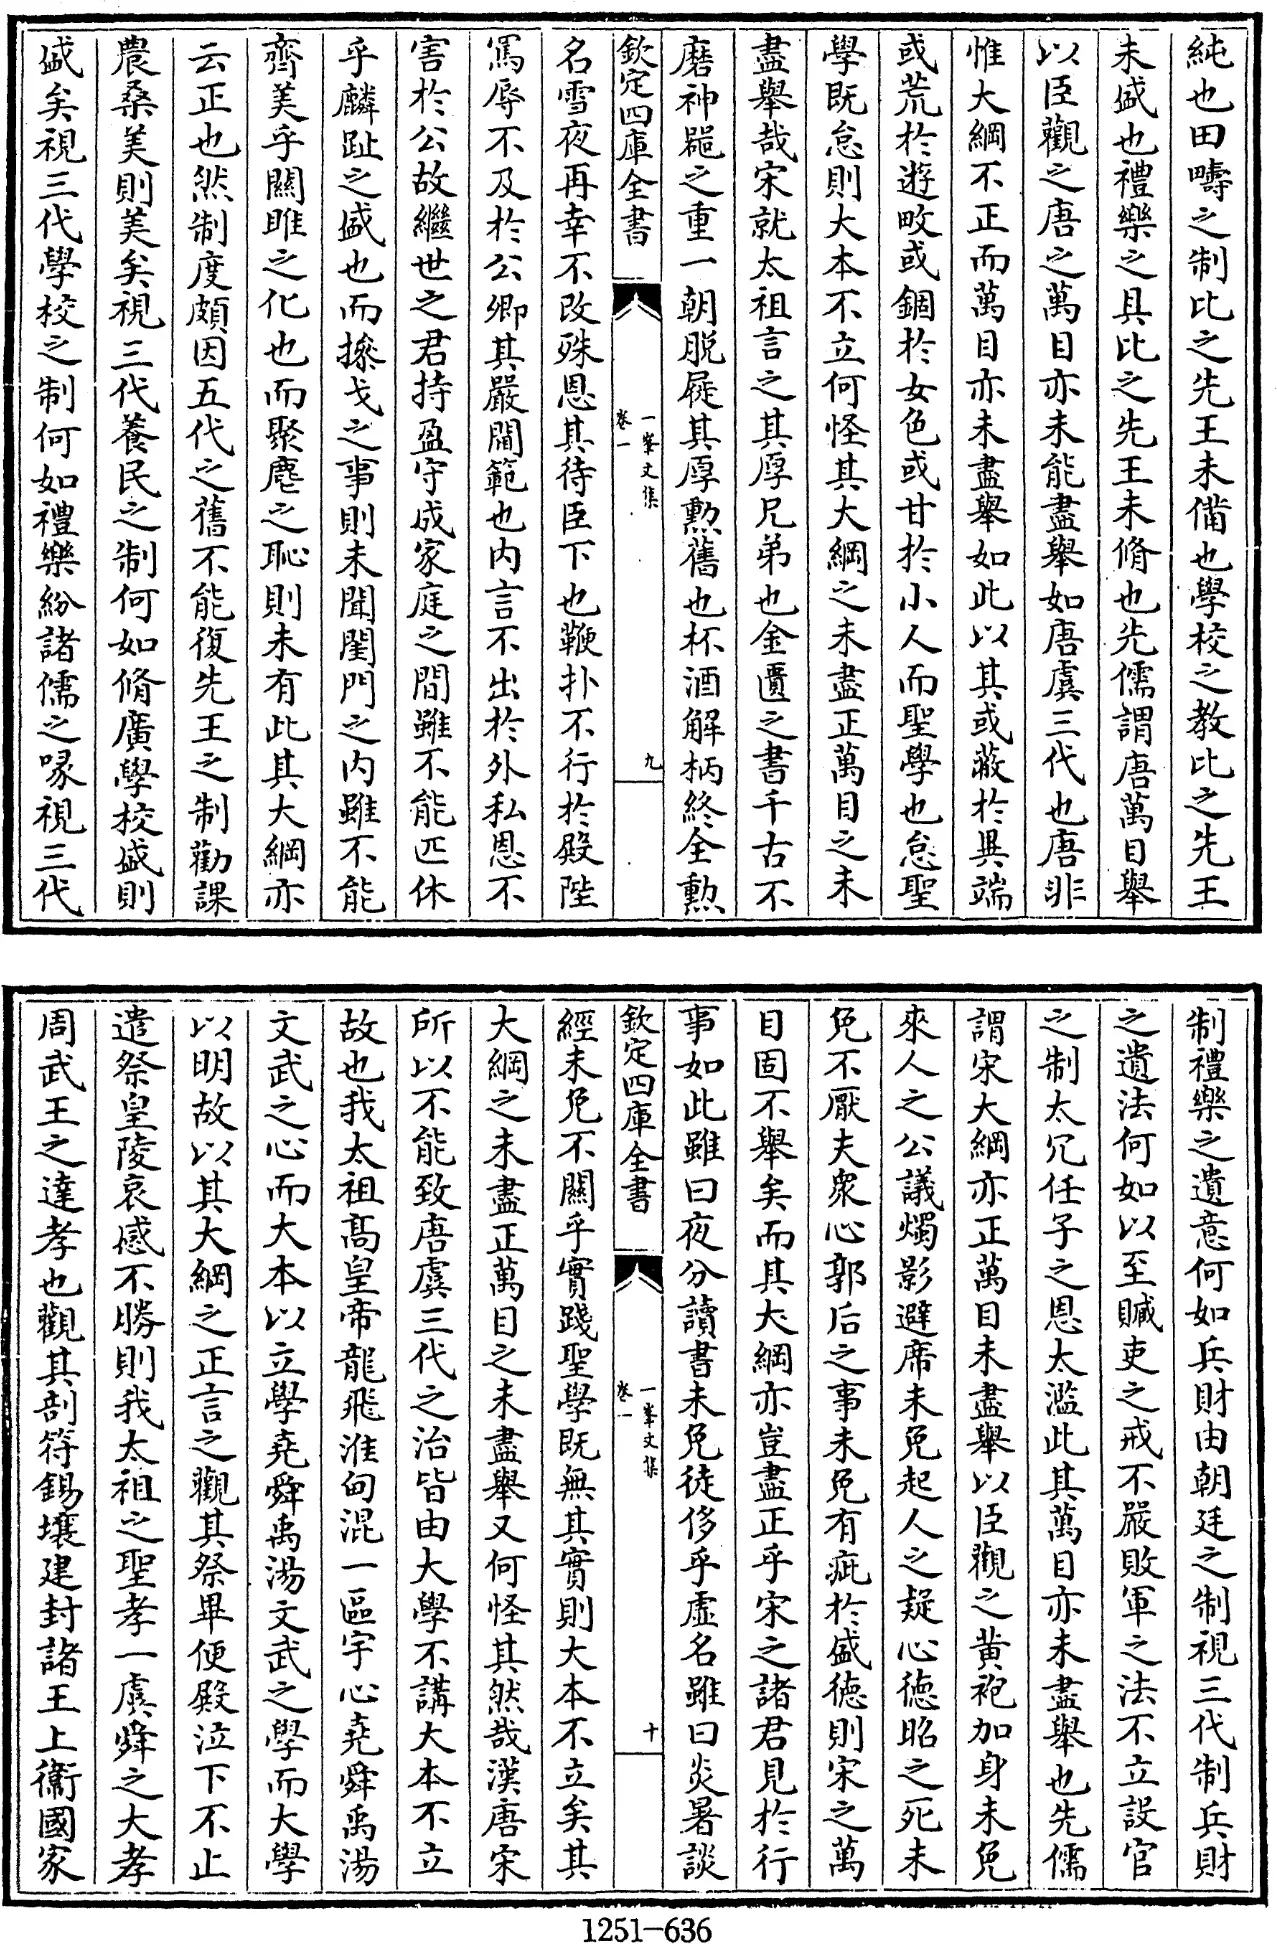 純也田疇之制比之先王未備也學校之教比之先王
未盛也禮樂之具比之先王未脩也先儒謂唐萬目舉
以臣觀之唐之萬目亦未能盡舉如唐虞三代也唐非
惟大綱不正而萬目亦未盡舉如此以其或蔽於異端
或荒於遊畋或錮於女色或甘於小人而聖學也怠聖
學既怠則大本不立何怪其大綱之未盡正萬目之未
盡舉哉宋就太祖言之其厚兄弟也金匱之書千古不
磨神器之重一朝脱屣其厚勲舊也杯酒解柄終全勲
欽定四庫全書
一峯文集
卷一
九
名雪夜再幸不改殊恩其待臣下也鞭扑不行於殿陛
罵辱不及於公卿其嚴閫範也内言不出於外私恩不
害於公故繼世之君持盈守成家庭之間雖不能匹休
乎麟趾之盛也而操戈之事則未聞閨門之内雖不能
齊美乎關雎之化也而聚麀之恥則未有此其大綱亦
云正也然制度頗因五代之舊不能復先王之制勸課
農桑美則美矣視三代養民之制何如脩廣學校盛則
盛矣視三代學校之制何如禮樂紛諸儒之喙視三代
制禮樂之遺意何如兵財由朝廷之制視三代制兵財
之遺法何如以至贓吏之戒不嚴敗軍之法不立設官
之制太冗任子之恩太濫此其萬目亦未盡舉也先儒
謂宋大綱亦正萬目未盡舉以臣觀之黄袍加身未免
來人之公議燭影避席未免起人之疑心徳昭之死未
免不厭夫衆心郭后之事未免有疵於盛徳則宋之萬
目固不舉矣而其大綱亦豈盡正乎宋之諸君見於行
事如此雖曰夜分讀書未免徒侈乎虚名雖曰炎暑談
欽定四庫全書
一峯文集
卷一
十
經未免不關乎實踐聖學既無其實則大本不立矣其
大綱之未盡正萬目之未盡舉又何怪其然哉漢唐宋
所以不能致唐虞三代之治皆由大學不講大本不立
故也我太祖髙皇帝龍飛淮甸混一區宇心堯舜禹湯
文武之心而大本以立學堯舜禹湯文武之學而大學
以明故以其大綱之正言之觀其祭畢便殿泣下不止
遣祭皇陵哀感不勝則我太祖之聖孝一虞舜之大孝
周武王之達孝也觀其剖符錫壤建封諸王上衞國家
1251-636